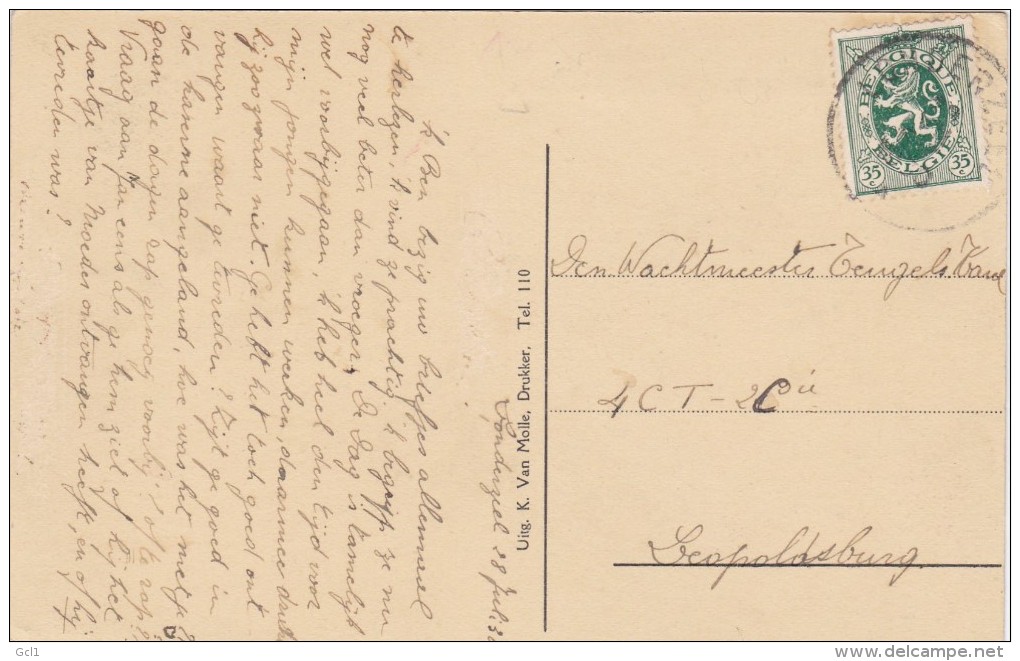 Londerzeel 28 Juli 32
'k Ben bezig uw briefjes allemaal
te herlezen, 'k vind ze prachtig, 'k begrijp ze nu
nog veel beter dan vroeger. De dag is tamelijk
wel voorbijgegaan, 'k heb heel den tijd voor
mijn jongen kunnen werken, daarmee duurt
hij zoo zwaar niet. Ge hebt het toch goed ont
vangen waart ge tevreden? Zijt ge goed in
de kaserne aangeland, hoe was het met je?
gaan de dagen rap genoeg voorbij? of te rap?
Vraag aan Jan eens als ge hem ziet of hij het
kaartje van Moeder ontvangen heeft, en of hij
tevreden was?
Uitg. K. Van Molle, Drukker, Tel. 110
BELGIQUE
BELGIE
35 c
35 c
Den Wachtmeester
4 CT - 2 Cie
Leopoldsburg.
Gcl1
www.delcampe.net